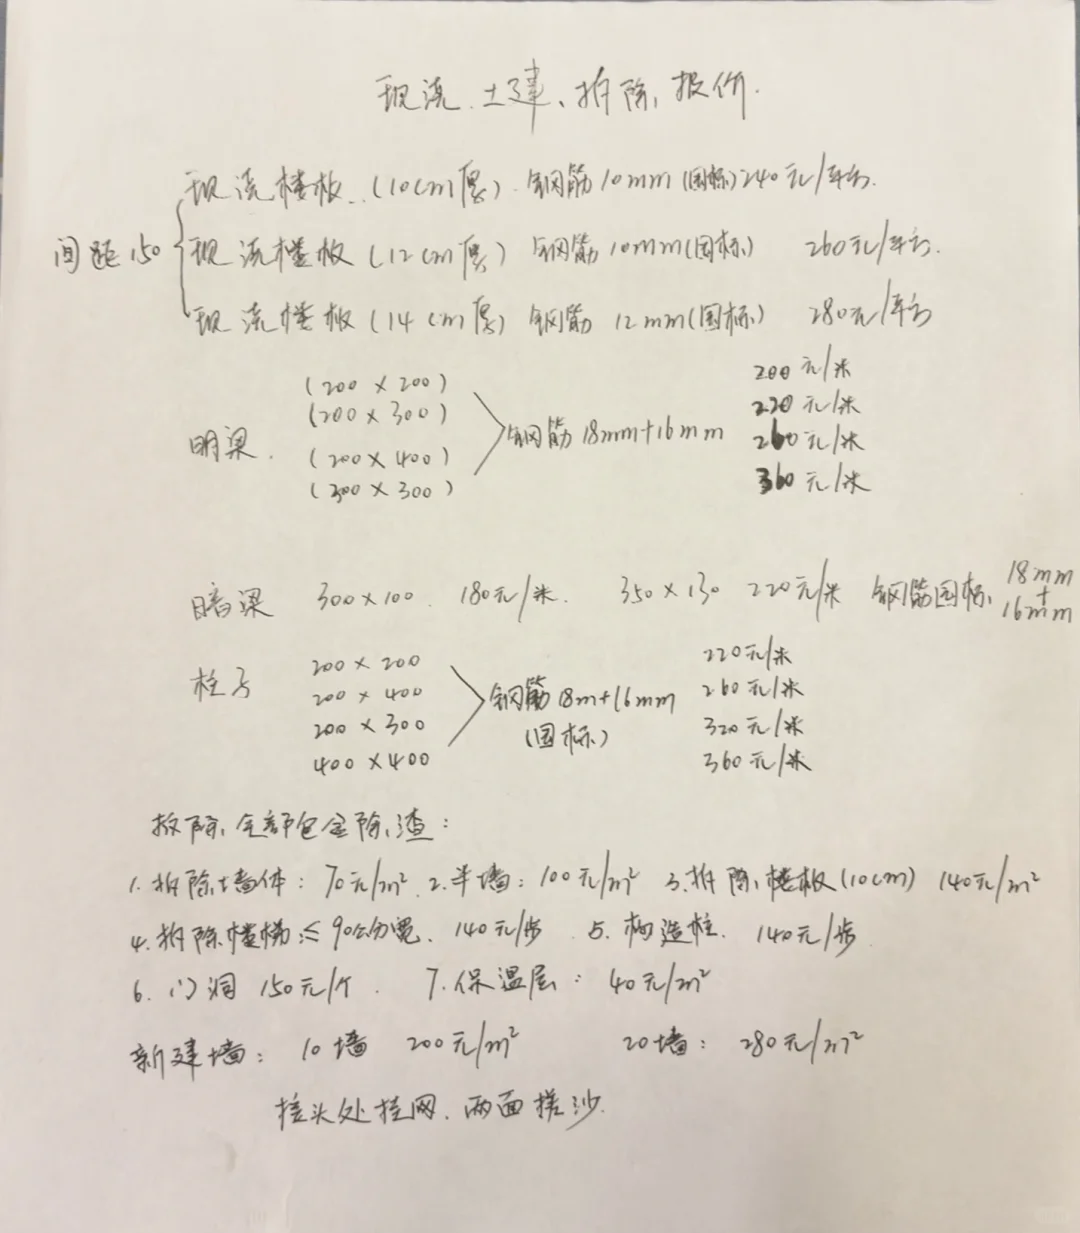 现浇、土建、拆除、报价.
现浇楼板..(10cm厚).钢筋10mm(国标)240元/平方.
间距150 现浇楼板(12cm厚) 钢筋10mm(国标) 260元/平方.
现浇楼板(14cm厚) 钢筋 12mm(国标) 280元/平方
(200×200) 200元/米
(200×300) 220元/米
明梁. 钢筋18mm+16mm
(200×400) 260元/米
(300×300) 360元/米
暗梁 300×100. 180元/米. 350×130 220元/米 钢筋国标 18mm+16mm
柱子 200×200 220元/米
200×400 钢筋18m+16mm 260元/米
200×300 (国标) 320元/米
400×400 360元/米
拆除,全部包含除渣:
1.拆除墙体: 70元/m² 2.半墙: 100元/m² 3.拆除楼板(10cm) 140元/m²
4.拆除楼梯:≤90公分宽. 140元/步 5.构造柱. 140元/步
6.门洞 150元/个. 7.保温层: 40元/m²
新建墙: 10墙 200元/m² 20墙: 280元/m²
接头处挂网.两面搓沙.